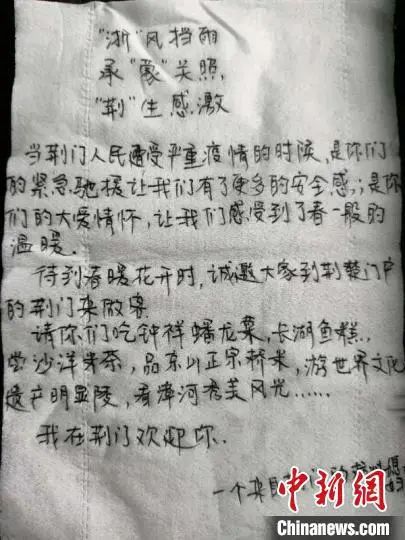 "浙"风挡雨
承"豫"关照,
"荆"生感激
当荆门人民遭受严重疫情的时候,是你们
的紧急驰援让我们有了更多的安全感,;是你
们的大爱情怀,让我们感受到了春一般的
温暖.
待到春暖花开时,诚邀大家到荆楚门户
的荆门来做客
请你们吃钟祥蟠龙菜,长湖鱼糕,
尝沙洋朱奈,品京山正宗桥米,游世界文化
遗产明显陵,看漳河秀美风光……
我在荆门欢迎你.
一个来自
中新网
Chinanews.com